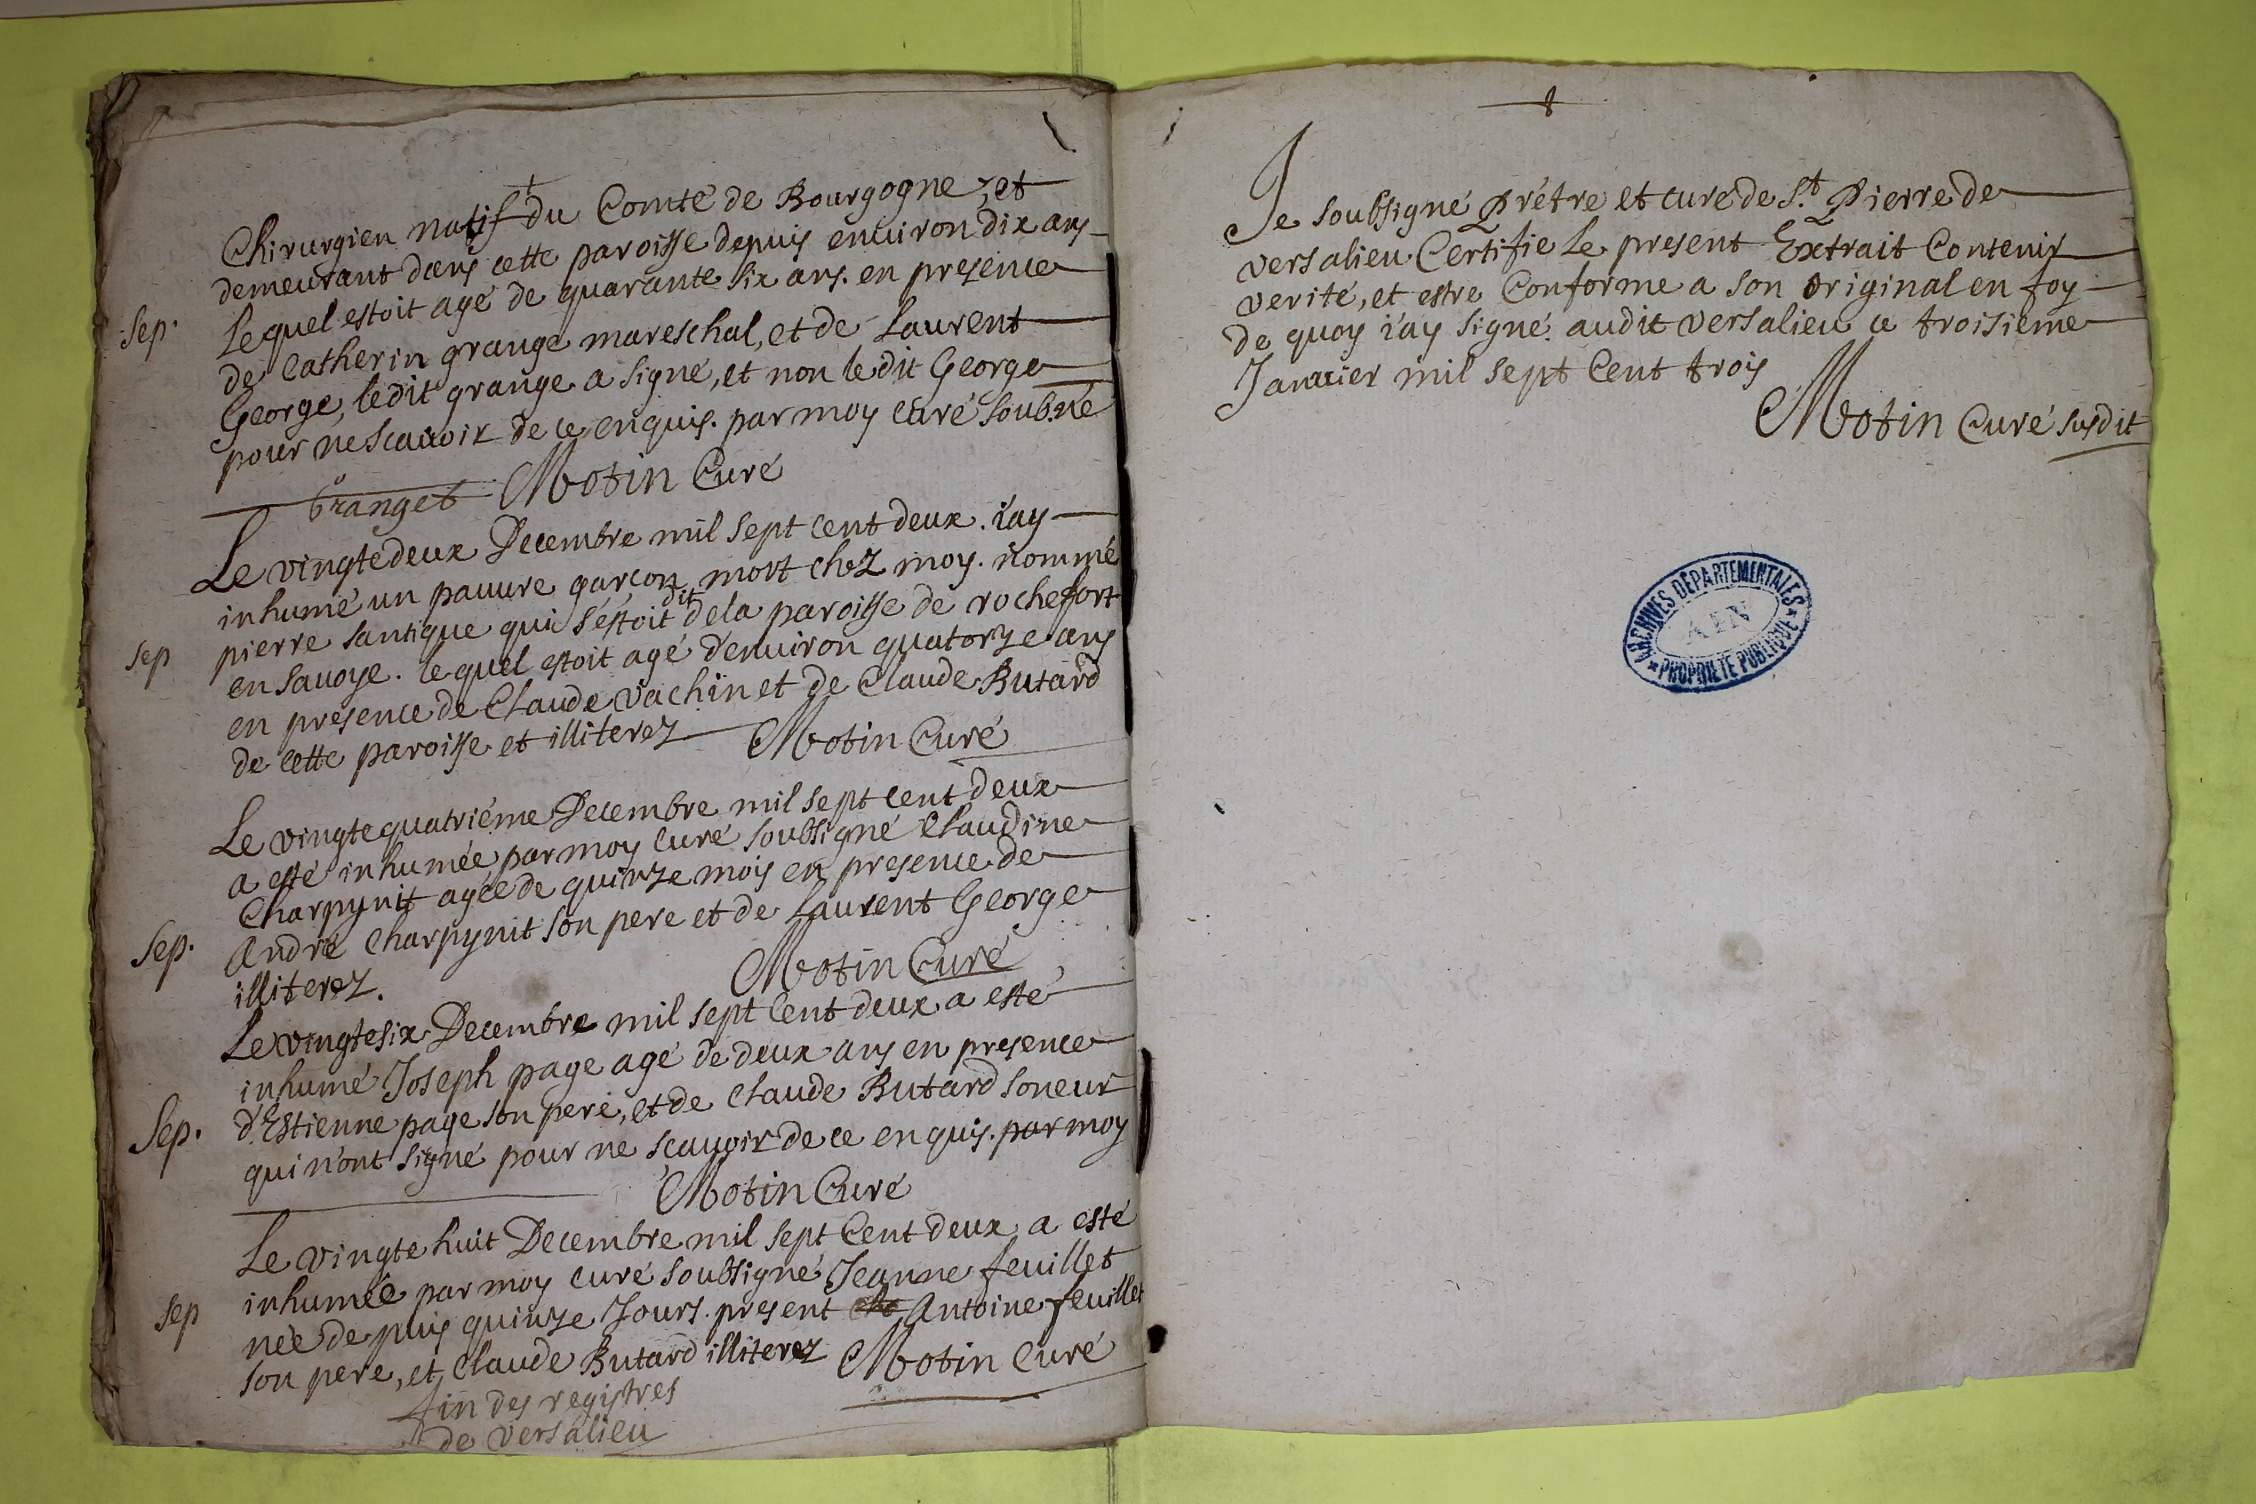 Chirurgien natif du Comté de Bourgogne, et
demeurant dans cette paroisse depuis enuiron dix ans
Sep. Lequel estoit agé de quarante six ans. en presence
de Catherin grange mareschal, et de Laurent
George, ledit grange a signé, et non ledit George
pour ne scauoir de ce enquis. par moy curé soubsné
Granget Motin Curé
Le vingtedeux Decembre mil sept cent deux. i'ay
inhumé un pauure garçon mort chez moy. nommé
sep pierre santique qui s'estoit dit de la paroisse de rochefort
en sauoye. lequel estoit agé d'enuiron quatorze ans
en presence de Claude vachin et de Claude Butard
de cette paroisse et illiterez Motin Curé
Le vingtequatriéme Decembre mil sept cent deux
a esté inhumée par moy curé soubsigné Claudine
Charpynit agée de quinze mois en presence de
Sep. André Charpynit son pere et de Laurent George
illiterez. Motin Curé
Le vingtesix Decembre mil sept cent deux a esté
inhumé Joseph page agé de deux ans en presence
Sep. d'Estienne page son pere, et de Claude Butard soneur
qui n'ont signé pour ne scauoir de ce enquis. par moy
Motin Curé
Le vingtehuit Decembre mil sept Cent deux a esté
inhumée par moy curé soubsigné Jeanne feuillet
sep née depuis quinze Jours. present Antoine feuillet
son pere, et Claude Butard illiterez Motin Curé
fin des registres
de versalieu
Je soubsigné Prétre et curé de St. Pierre de
versalieu Certifie Le present Extrait Contenir
verité, et estre Conforme a son original en foy
de quoy i'ay signé. audit versalieu ce troisieme
Januier mil sept Cent trois
Motin Curé susdit
ARCHIVES DÉPARTEMENTALES
AIN
PROPRIÉTÉ PUBLIQUE